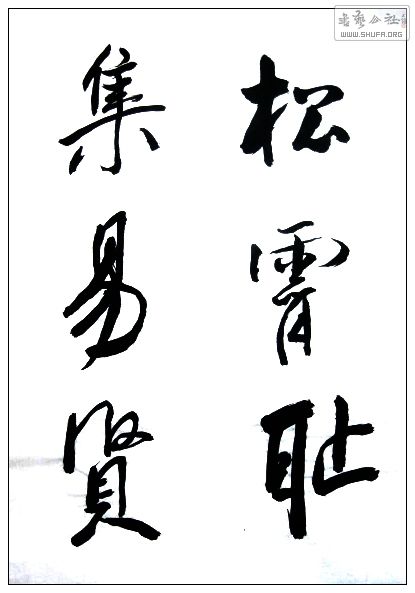 书艺公社
WWW.SHUFA.ORG
松霄耻
集易賢